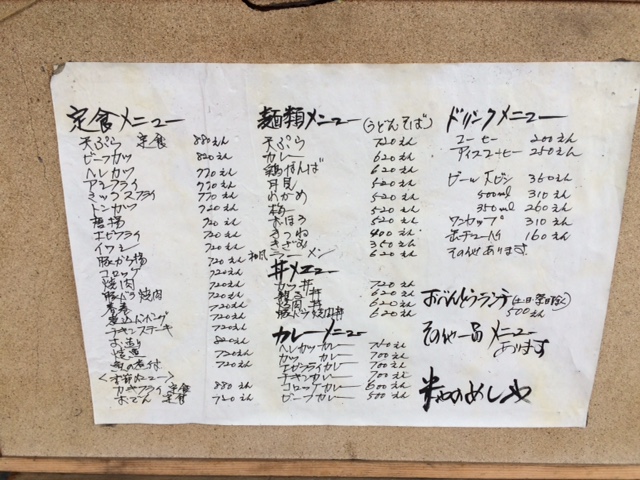 定食メニュー
天ぷら 定食 880えん
ビーフカツ 820えん
ヘレカツ 770えん
アジフライ 770えん
ミックスフライ 770えん
トンカツ 720えん
唐揚 720えん
エビフライ 720えん
イワシ 720えん
豚から揚 720えん
コロッケ 720えん
焼肉 720えん
豚バラ焼肉 720えん
春巻 720えん
煮込ハンバーグ 720えん
チキンステーキ 720えん
お造り 820えん
焼魚 720えん
魚の煮付 720えん
カキフライ 定食 880えん
おでん 定食 720えん
麺類メニュー (うどんそば)
天ぷら 720えん
カレー 620えん
鶏なんば 620えん
月見 520えん
わかめ 520えん
梅 520えん
おぼろ 520えん
きつね 400えん
きざみ 360えん
ラーメン 620えん
丼メニュー
カツ丼 720えん
親子丼 620えん
焼肉丼 620えん
豚バラ焼肉丼 620えん
カレーメニュー
ヘレカツカレー 760えん
カツカレー 700えん
エビフライカレー 700えん
チキンカレー 700えん
コロッケカレー 600えん
ビーフカレー 500えん
ドリンクメニュー
コーヒー 200えん
アイスコーヒー 250えん
ビール大ビン 360えん
500ml 310えん
350ml 260えん
ワンカップ 310えん
缶チューハイ 160えん
その他あります.
おべんとうランチ (土日祭日除く)
500えん
その他一品メニュー
あります